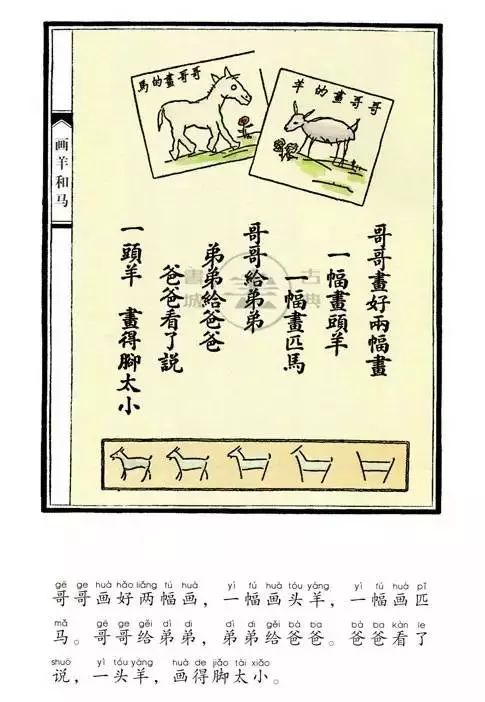 哥哥畫的馬
哥哥畫的羊
画羊和马
哥哥畫好兩幅畫
一幅畫頭羊
一幅畫匹馬
哥哥給弟弟
弟弟給爸爸
爸爸看了說
一頭羊 畫得腳太小
古典書城
gē ge huà hǎo liǎng fú huà yì fú huà tóu yáng yì fú huà pǐ
哥哥画好两幅画，一幅画头羊，一幅画匹
mǎ gē ge gěi dì di dì di gěi bà ba bà ba kàn le
马。哥哥给弟弟，弟弟给爸爸。爸爸看了
shuō yì tóu yáng huà de jiǎo tài xiǎo
说，一头羊，画得脚太小。